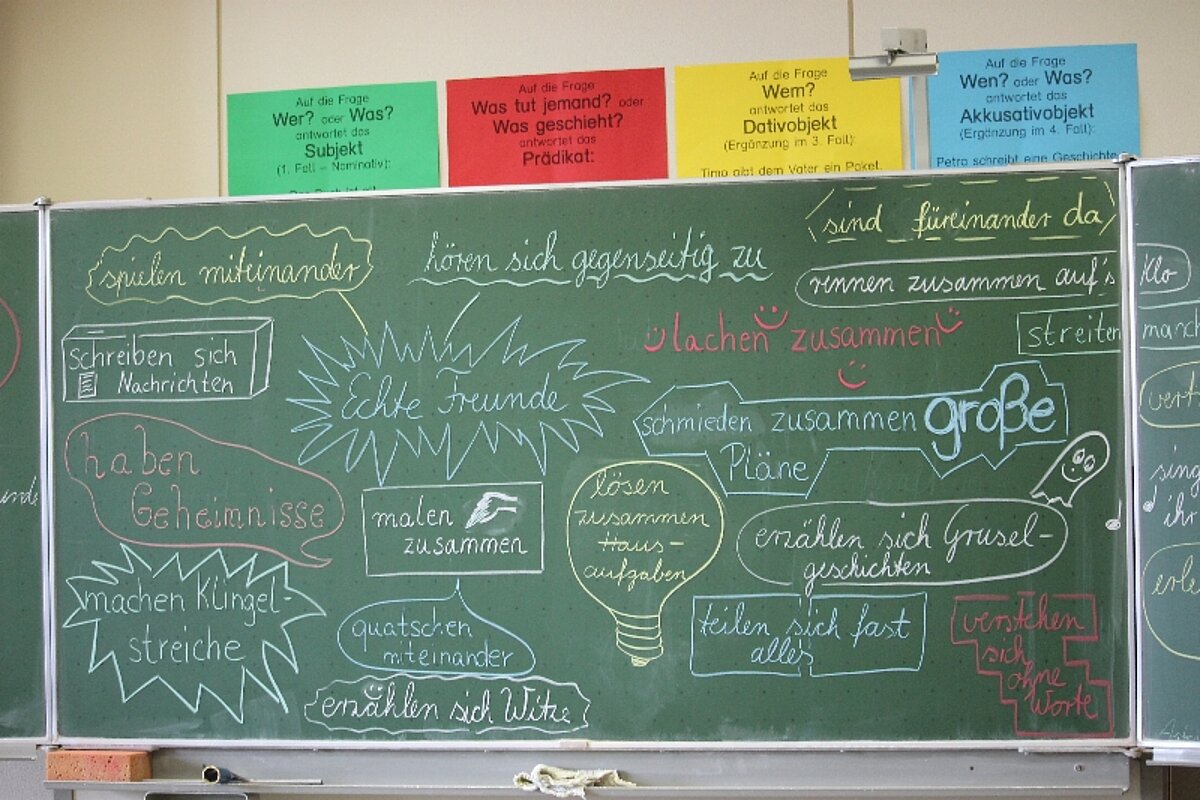 Auf die Frage
Wer? oder Was?
antwortet das
Subjekt
(1. Fall – Nominativ):
Auf die Frage
Was tut jemand? oder
Was geschieht?
antwortet das
Prädikat:
Auf die Frage
Wem?
antwortet das
Dativobjekt
(Ergänzung im 3. Fall):
Timo gibt dem Vater ein Paket.
Auf die Frage
Wen? oder Was?
antwortet das
Akkusativobjekt
(Ergänzung im 4. Fall):
Petra schreibt eine Geschichte
spielen miteinander
hören sich gegenseitig zu
sind füreinander da
rennen zusammen auf's Klo
lachen zusammen
streiten manch
Schreiben sich
Nachrichten
Echte Freunde
schmieden zusammen große
Pläne
haben
Geheimnisse
malen
zusammen
lösen
zusammen
Haus-
aufgaben
erzählen sich Grusel-
geschichten
machen Klingel-
streiche
quatschen
miteinander
teilen sich fast
alles
verstehen
sich
ohne
Worte
erzählen sich Witze
sing
ihr
erle